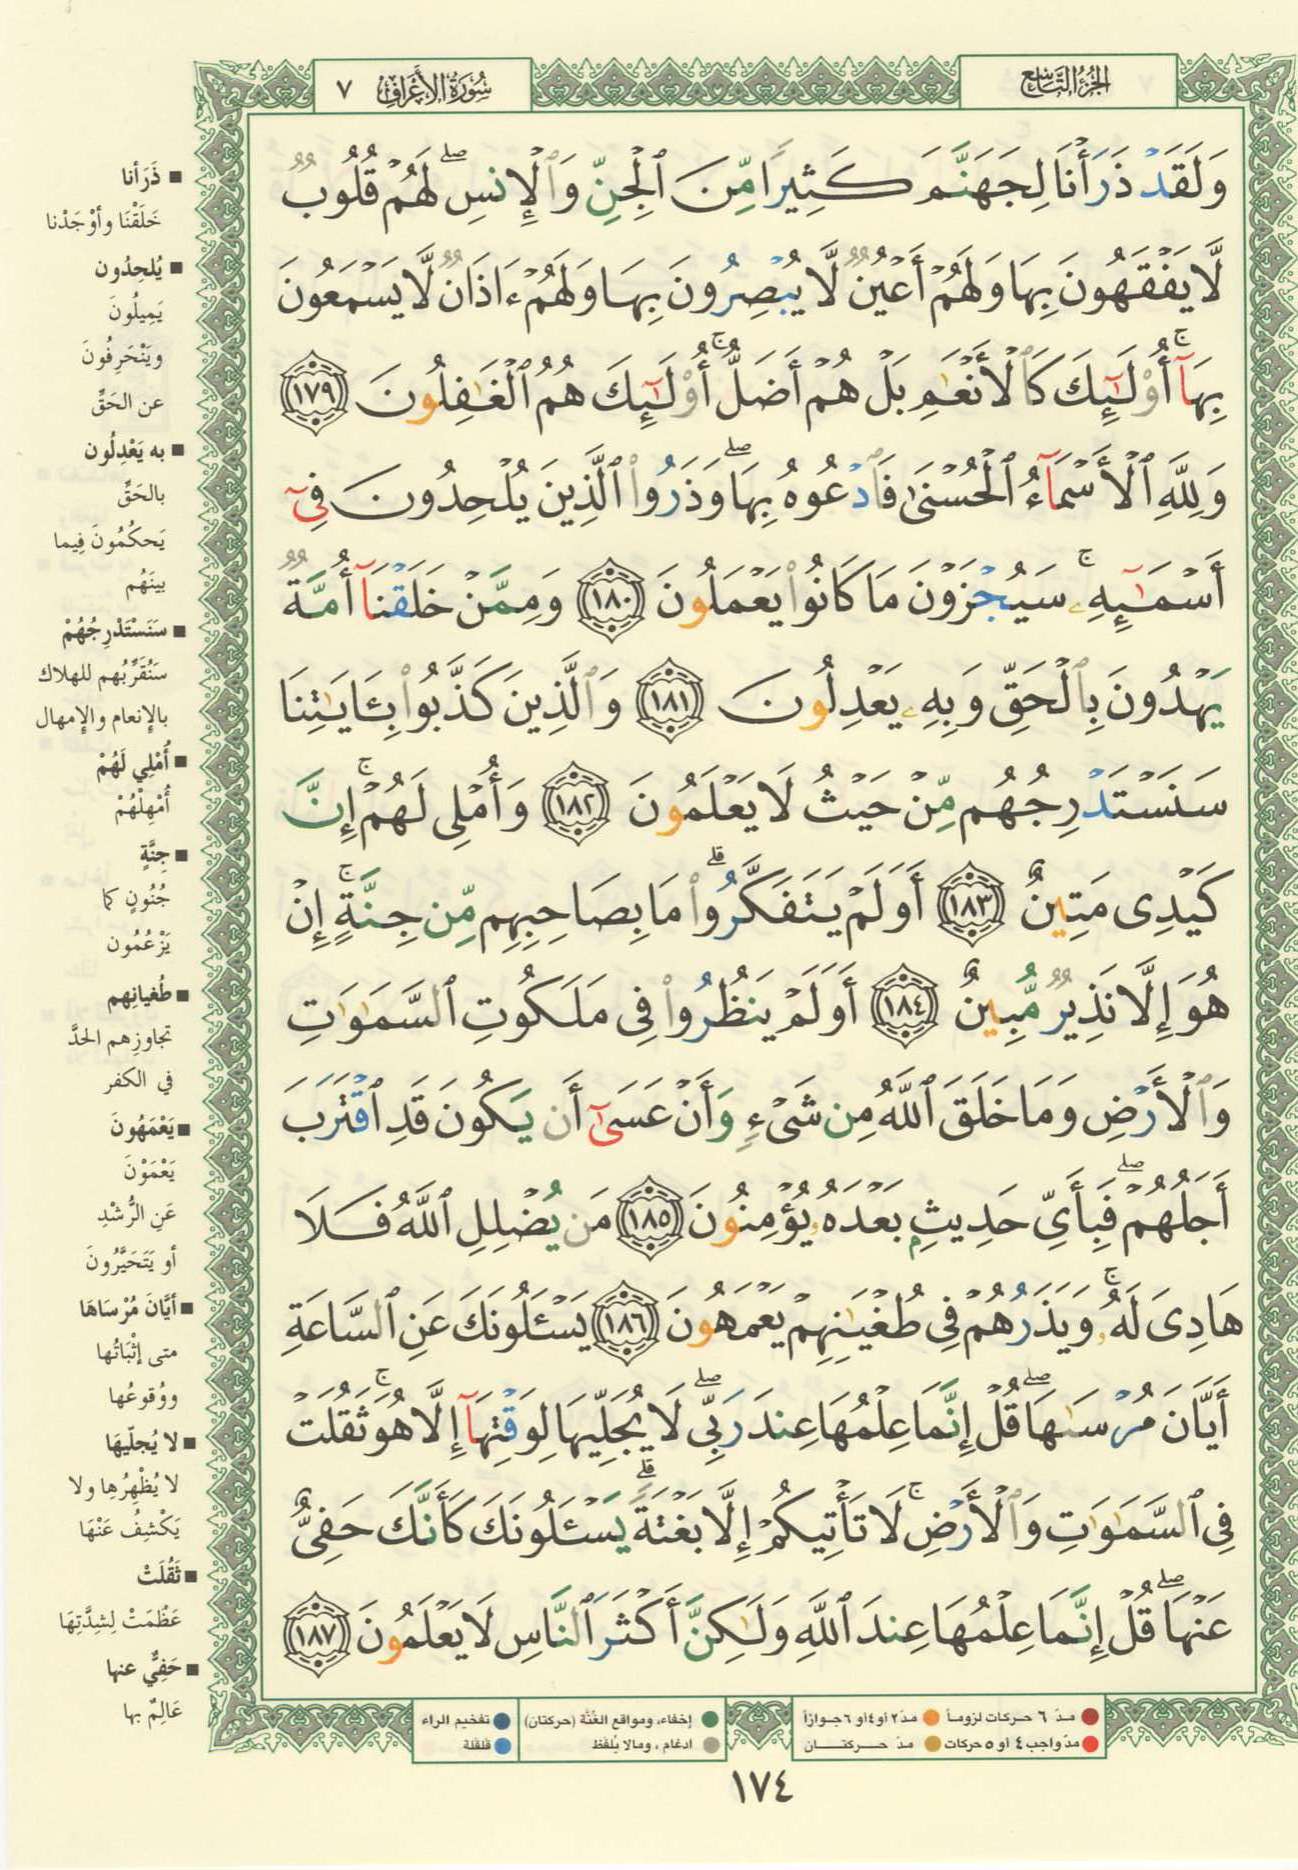 الجزء التاسع
سورة الأعراف ٧
وَلَقَدْ ذَرَأْنَا لِجَهَنَّمَ كَثِيرًا مِّنَ ٱلْجِنِّ وَٱلْإِنسِ ۖ لَهُمْ قُلُوبٌ
لَّا يَفْقَهُونَ بِهَا وَلَهُمْ أَعْيُنٌ لَّا يُبْصِرُونَ بِهَا وَلَهُمْ ءَاذَانٌ لَّا يَسْمَعُونَ
بِهَآ ۚ أُو۟لَـٰٓئِكَ كَٱلْأَنْعَـٰمِ بَلْ هُمْ أَضَلُّ ۚ أُو۟لَـٰٓئِكَ هُمُ ٱلْغَـٰفِلُونَ ١٧٩
وَلِلَّهِ ٱلْأَسْمَآءُ ٱلْحُسْنَىٰ فَٱدْعُوهُ بِهَا ۖ وَذَرُوا۟ ٱلَّذِينَ يُلْحِدُونَ فِىٓ
أَسْمَـٰٓئِهِۦ ۚ سَيُجْزَوْنَ مَا كَانُوا۟ يَعْمَلُونَ ١٨٠ وَمِمَّنْ خَلَقْنَآ أُمَّةٌ
يَهْدُونَ بِٱلْحَقِّ وَبِهِۦ يَعْدِلُونَ ١٨١ وَٱلَّذِينَ كَذَّبُوا۟ بِـَٔايَـٰتِنَا
سَنَسْتَدْرِجُهُم مِّنْ حَيْثُ لَا يَعْلَمُونَ ١٨٢ وَأُمْلِى لَهُمْ ۚ إِنَّ
كَيْدِى مَتِينٌ ١٨٣ أَوَلَمْ يَتَفَكَّرُوا۟ ۗ مَا بِصَاحِبِهِم مِّن جِنَّةٍ ۚ إِنْ
هُوَ إِلَّا نَذِيرٌ مُّبِينٌ ١٨٤ أَوَلَمْ يَنظُرُوا۟ فِى مَلَكُوتِ ٱلسَّمَـٰوَٰتِ
وَٱلْأَرْضِ وَمَا خَلَقَ ٱللَّهُ مِن شَىْءٍ وَأَنْ عَسَىٰٓ أَن يَكُونَ قَدِ ٱقْتَرَبَ
أَجَلُهُمْ ۖ فَبِأَىِّ حَدِيثٍۭ بَعْدَهُۥ يُؤْمِنُونَ ١٨٥ مَن يُضْلِلِ ٱللَّهُ فَلَا
هَادِىَ لَهُۥ ۚ وَيَذَرُهُمْ فِى طُغْيَـٰنِهِمْ يَعْمَهُونَ ١٨٦ يَسْـَٔلُونَكَ عَنِ ٱلسَّاعَةِ
أَيَّانَ مُرْسَىٰهَا ۖ قُلْ إِنَّمَا عِلْمُهَا عِندَ رَبِّى ۖ لَا يُجَلِّيهَا لِوَقْتِهَآ إِلَّا هُوَ ۚ ثَقُلَتْ
فِى ٱلسَّمَـٰوَٰتِ وَٱلْأَرْضِ ۚ لَا تَأْتِيكُمْ إِلَّا بَغْتَةً ۗ يَسْـَٔلُونَكَ كَأَنَّكَ حَفِىٌّ
عَنْهَا ۖ قُلْ إِنَّمَا عِلْمُهَا عِندَ ٱللَّهِ وَلَـٰكِنَّ أَكْثَرَ ٱلنَّاسِ لَا يَعْلَمُونَ ١٨٧
■ ذَرَأنا
خَلَقْنَا وأوْجَدْنا
■ يُلحِدُون
يَمِيلُونَ
ويَنْحَرِفُونَ
عن الحَقِّ
■ به يَعْدِلُون
بالحَقِّ
يَحكُمُونَ فِيما
بينَهُم
■ سَنَسْتَدْرِجُهُمْ
سَنُقَرِّبُهم للهلاك
بالإنعام والإمهال
■ أُمْلِي لَهُمْ
أُمْهِلُهُمْ
■ جِنَّةٍ
جُنُونٍ كما
يَزْعُمُون
■ طُغيانِهم
تجاوزِهم الحدَّ
في الكفر
■ يَعْمَهُونَ
يَعْمَوْنَ
عَنِ الرُّشْدِ
أو يَتَحَيَّرُونَ
■ أيَّانَ مُرْسَاهَا
متى إثْبَاتُها
ووُقوعُها
■ لا يُجلّيهَا
لا يُظْهِرُها ولا
يَكْشِفُ عَنْهَا
■ ثَقُلَتْ
عَظُمَتْ لِشِدَّتِهَا
■ حَفِيٌّ عنها
عَالِمٌ بها
● مدّ ٦ حركات لزوماً ● مدّ ٢ أو ٤ أو ٦ جوازاً
● مدّ واجب ٤ أو ٥ حركات ● مدّ حركتان
● إخفاء، ومواقع الغُنَّة (حركتان)
● ادغام، ومالا يُلفَظ
● تفخيم الراء
● قلقلة
١٧٤